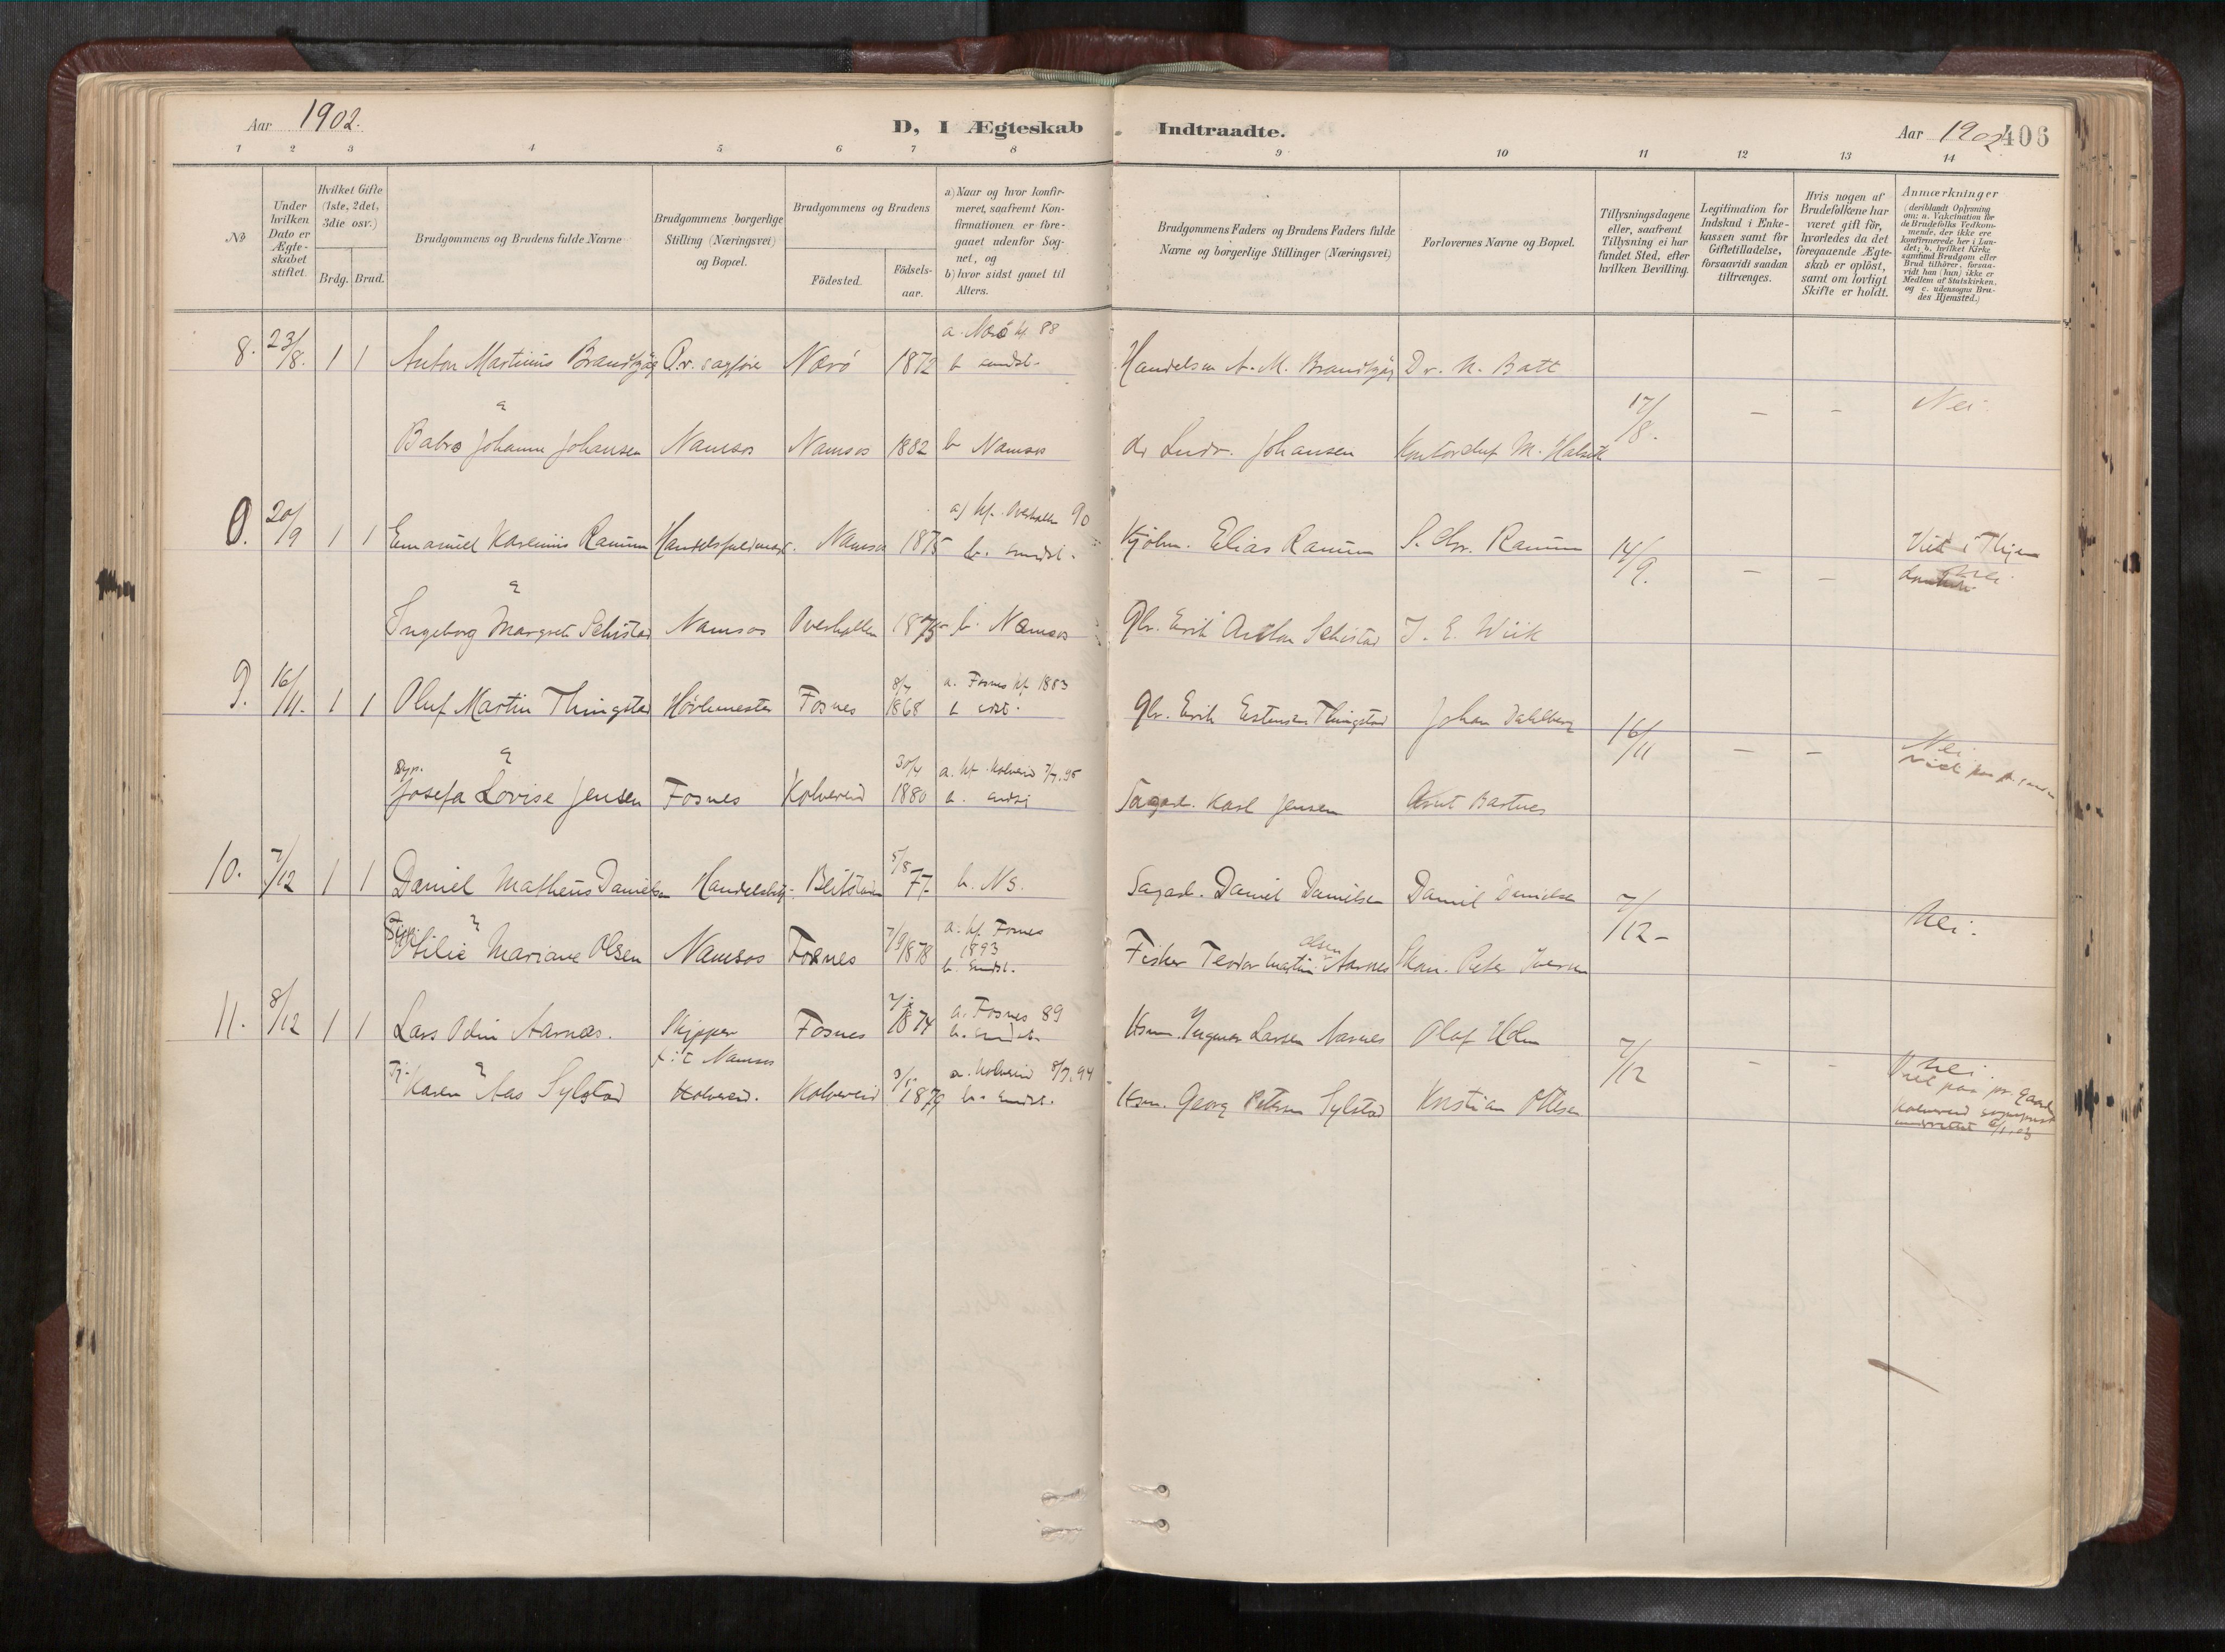 Aar 1902.
D, I Ægteskab Indtraadte.
Aar 1902 406
1 2 3 4 5 6 7 8 9 10 11 12 13 14
No
Under hvilken Dato er Ægte-skabet stiftet.
Hvilket Gifte (1ste, 2det, 3die osv.)
Brdg. Brud.
Brudgommens og Brudens fulde Navne
Brudgommens borgerlige Stilling (Næringsvei) og Bopæl.
Brudgommens og Brudens
Födested.
Födsels-aar.
a) Naar og hvor konfir-meret, saafremt Kon-firmationen er fore-gaaet udenfor Sog-net, og
b) hvor sidst gaaet til Alters.
Brudgommens Faders og Brudens Faders fulde Navne og borgerlige Stillinger (Næringsvei)
Forlovernes Navne og Bopæl.
Tillysningsdagene eller, saafremt Tillysning ei har fundet Sted, efter hvilken Bevilling.
Legitimation for Indskud i Enke-kassen samt for Giftetilladelse, forsaavidt saadan tiltrænges.
Hvis nogen af Brudefolkene har været gift för, hvorledes da det foregaaende Ægte-skab er oplöst, samt om lovligt Skifte er holdt.
Anmærkninger
(deriblandt Oplysning om: a. Vakcination for de Brudefolks Vedkom-mende, der ikke ere konfirmerede her i Lan-det; b. hvilket Kirke-samfund Brudgom eller Brud tilhörer, forsaa-vidt han (hun) ikke er Medlem af Statskirken, og c. udensogns Bru-des Hjemsted.)
8. 23/8. 1 1 Anton Martinius Brandtzæg O.r. sagfører Nærö 1872 a. Nærö kf. 88 b. Handelsm A. M. Brandtzæg Dr. N. Batt
17/8. - - Nei.
Johanne Johansen Namsos Namsos 1882 b Namsos Johansen M.
20/9 1 1 Emanuel Ranum Namsos 1875 a) kf. Overhallen 90 b. Elias Ranum S. Chr. Ranum
14/9. - -
Ingeborg Margrete Selistad Namsos Overhallen 1875 b. Namsos Gbr. Erik Selistad J. E. Wiik
9. 16/11. 1 1 Oluf Martin Thingstad Høvlemester Fosnes 8/7 1868 a. Fosnes kf 1883 b Gbr. Erik Estensen Thingstad Johan Dahlberg
16/11 - - Nei
Josefa Lovise Jensen Fosnes Kolvereid 30/4 1880 a. kf. Kolvereid 7/7.95 Sagarb. Karl Jensen Bartnes
10. 7/12 1 1 Daniel Matheus Danielsen Beitstaden 5/8 77 b. Ns. Sagarb. Daniel Danielsen Daniel Danielsen
7/12 - Nei.
Otilie Mariane Olsen Namsos Fosnes 7/9 1878 a. kf. Fosnes 1893 b. Fisker Teodor Martin Olsen Aarnes Peter Iversen
11. 8/12 1 1 Lars Odin Aarnæs. Skipper Fosnes 1874 a. Fosnes 89 b. Hsm. Ingmar Larsen Aarnes Olaf Holm
p.t. Namsos
7/12 - - Nei.
Karen Aas Sylstad Kolvereid. Kolvereid 1879 a. Kolvereid 8/7.94 b. Hsm. Georg Petersen Sylstad Kristian Ottesen
Kolvereid sogneprest